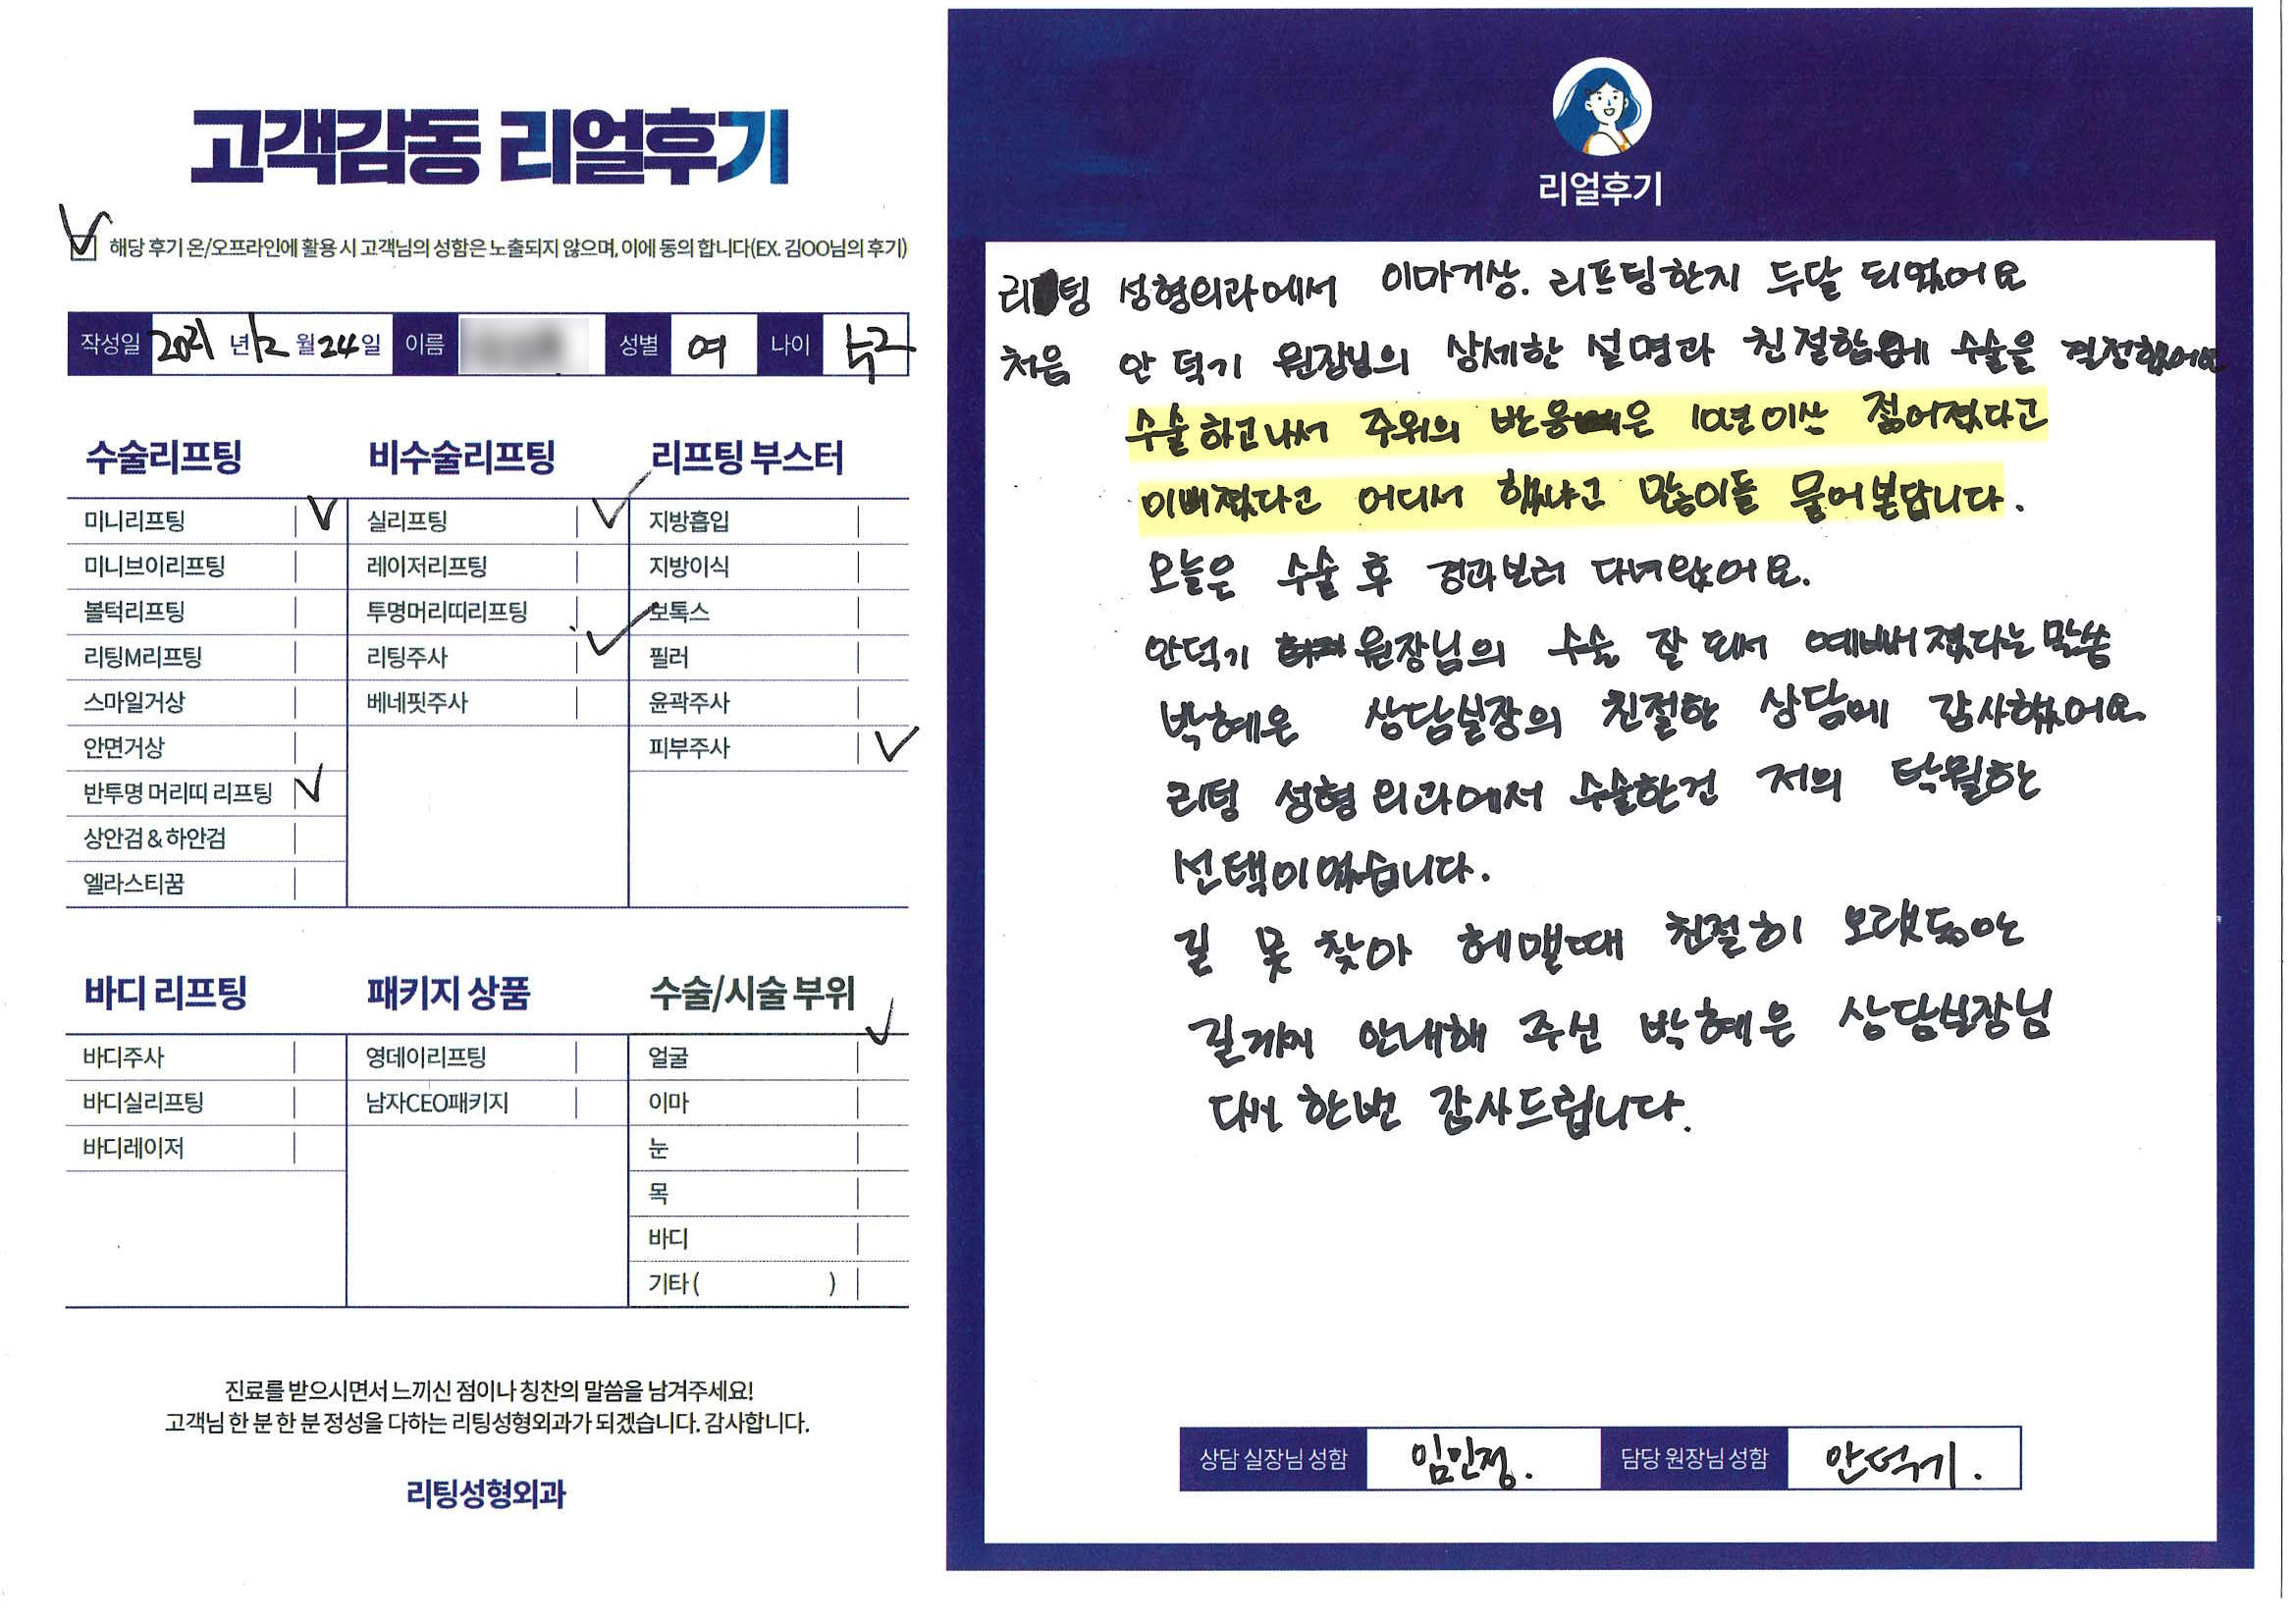 고객감동 리얼후기
해당 후기 온/오프라인에 활용 시 고객님의 성함은 노출되지 않으며, 이에 동의 합니다(EX. 김OO님의 후기)
작성일 2021 년 12 월 24 일 이름 성별 여 나이
수술리프팅
미니리프팅
미니브이리프팅
볼턱리프팅
리팅M리프팅
스마일거상
안면거상
반투명 머리띠 리프팅
상안검 & 하안검
엘라스티꿈
비수술리프팅
실리프팅
레이저리프팅
투명머리띠리프팅
리팅주사
베네핏주사
리프팅 부스터
지방흡입
지방이식
보톡스
필러
윤곽주사
피부주사
바디 리프팅
바디주사
바디실리프팅
바디레이저
패키지 상품
영데이리프팅
남자CEO패키지
수술/시술 부위
얼굴
이마
눈
목
바디
기타 ( )
진료를 받으시면서 느끼신 점이나 칭찬의 말씀을 남겨주세요!
고객님 한 분 한 분 정성을 다하는 리팅성형외과가 되겠습니다. 감사합니다.
리팅성형외과
리얼후기
리팅 성형외과에서 이마거상. 리프팅한지 두달 되었어요
처음 안덕기 원장님의 상세한 설명과 친절함에 수술을 결정했어요
수술하고나서 주위의 반응은 10년이상 젊어졌다고
이뻐졌다고 어디서 했냐고 많이들 물어본답니다.
오늘은 수술 후 경과보러 다녀왔어요.
안덕기 원장님의 수술 잘 되서 예뻐졌다는 말씀
박혜은 상담실장의 친절한 상담에 감사했어요
리팅 성형외과에서 수술한건 저의 탁월한
선택이였습니다.
길 못 찾아 헤맬때 친절히 오랫동안
길까지 안내해 주신 박혜은 상담실장님
다시 한번 감사드립니다.
상담 실장님 성함 임민정. 담당 원장님 성함 안덕기.